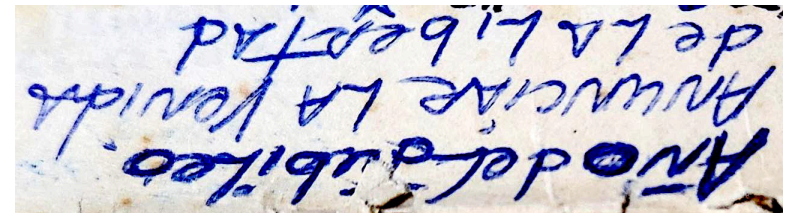 Año del Jubileo.
Anunciar LA Venida
de LA Libertad